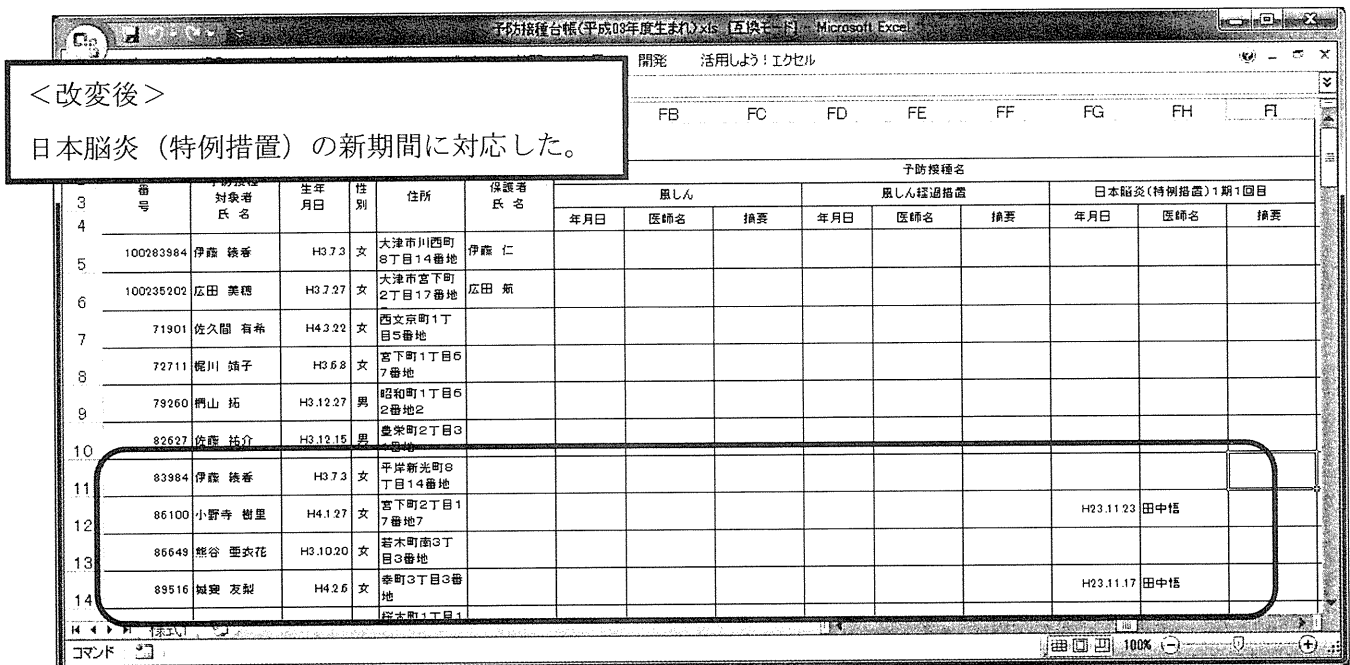 予防接種台帳(平成03年度生まれ).xls [互換モード] - Microsoft Excel
開発 活用しよう！エクセル
＜改変後＞
日本脳炎（特例措置）の新期間に対応した。
FB FC FD FE FF FG FH FI
予防接種名
3 番号 対象者氏名 生年月日 性別 住所 保護者氏名 風しん 風しん経過措置 日本脳炎(特例措置)1期1回目
4 年月日 医師名 摘要 年月日 医師名 摘要 年月日 医師名 摘要
5 100283984 伊藤 綾香 H3.7.3 女 大津市川西町8丁目14番地 伊藤 仁
6 100235202 広田 美穂 H3.7.27 女 大津市宮下町2丁目17番地 広田 航
7 71901 佐久間 有希 H4.3.22 女 西文京町1丁目5番地
8 72711 梶川 靖子 H3.6.8 女 宮下町1丁目67番地
9 79260 椚山 拓 H3.12.27 男 昭和町1丁目62番地2
10 82627 佐藤 祐介 H3.12.15 男 豊栄町2丁目3
11 83984 伊藤 綾香 H3.7.3 女 平岸新光町8丁目14番地
12 86100 小野寺 樹里 H4.1.27 女 宮下町2丁目17番地7 H23.11.23 田中悟
13 86649 熊谷 亜衣花 H3.10.20 女 若木町南3丁目3番地
14 89516 城寶 友梨 H4.2.6 女 幸町3丁目3番地 H23.11.17 田中悟
桜木町1丁目1
様式1
コマンド 100%